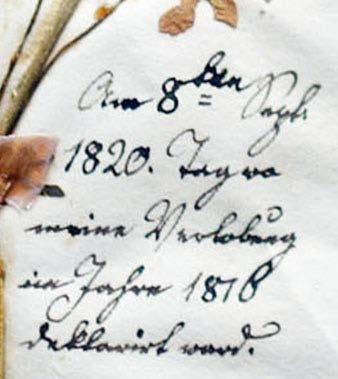 Am 8ten Sept.
1820. Tag wo
meine Verlobung
im Jahre 1818
deklarirt ward.